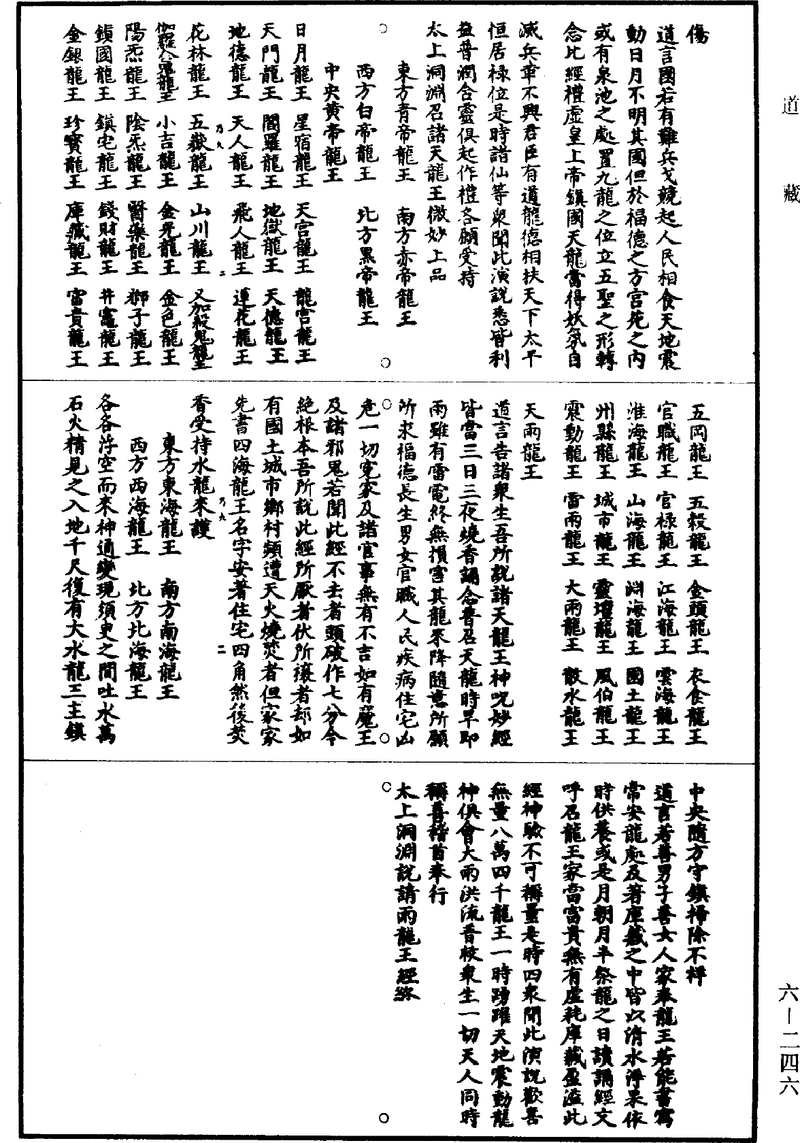 道藏
傷
道言國若有難兵戈競起人民相食天地震
動日月不明其國但於福德之方宮苑之内
或有泉池之處置九龍之位立五聖之形轉
念此經禮虛皇上帝鎮國天龍當得妖氛自
滅兵革不興君臣有道龍德相扶天下太平
恒居祿位是時諸仙等衆聞此演說悉皆利
益普潤含靈俱起作禮各願受持
太上洞淵召諸天龍王微妙上品
東方青帝龍王 南方赤帝龍王
西方白帝龍王 北方黑帝龍王
中央黃帝龍王
日月龍王 星宿龍王 天宮龍王 龍宮龍王
天門龍王 閻羅龍王 地獄龍王 天德龍王
地德龍王 天人龍王 飛人龍王 蓮花龍王
乃九 二
花林龍王 五嶽龍王 山川龍王
伽羅 小吉龍王 金光龍王 金色龍王
陽炁龍王 陰炁龍王 醫藥龍王 獅子龍王
鎮國龍王 鎮宅龍王 錢財龍王 井竈龍王
金銀龍王 珍寶龍王 庫藏龍王 富貴龍王
五岡龍王 五穀龍王 金頭龍王 衣食龍王
官職龍王 官祿龍王 江海龍王 雲海龍王
淮海龍王 山海龍王 淵海龍王 國土龍王
州縣龍王 城市龍王 靈壇龍王 風伯龍王
震動龍王 雷雨龍王 大雨龍王 散水龍王
天雨龍王
道言告諸衆生吾所說諸天龍王神呪妙經
皆當三日三夜燒香誦念普召天龍時旱即
雨雖有雷電終無損害其龍來降隨意所願
所求福德長生男女官職人民疾病住宅凶
危一切冤家及諸官事無有不吉如有魔王
及諸邪鬼若聞此經不去者頭破作七分令
絕根本吾所說此經所厭者伏所禳者却如
有國土城市鄉村頻遭天火燒焚者但家家
先書四海龍王名字安著住宅四角然後焚
乃九 二
香受持水龍來護
東方東海龍王 南方南海龍王
西方西海龍王 北方北海龍王
各各浮空而來神通變現須臾之間吐水萬
石火精見之入地千尺復有大水龍三主鎮
中央隨方守鎮掃除不祥
道言若善男子善女人家奉龍王若能書寫
常安龍處及著庫藏之中皆以清水淨果依
時供養或是月朝月半祭龍之日讀誦經文
呼召龍王家當富貴無有虛耗庫藏盈溢此
經神驗不可稱量是時四衆聞此演說歡喜
無量八萬四千龍王一時踴躍天地震動龍
神俱會大雨洪流普救衆生一切天人同時
稱善稽首奉行
太上洞淵說請雨龍王經終
六—二四六